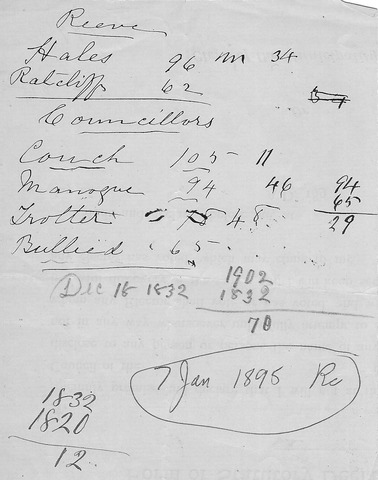 Reeve
Hales 96 m 34
Ratcliff 62
34
Councillors
Couch 105 11
Manogue 94 46 94
65
Trotter 78 48 29
Bullied 65
Dec 18 1832 1902
1832
70
7 Jan 1895 Re
1832
1820
12